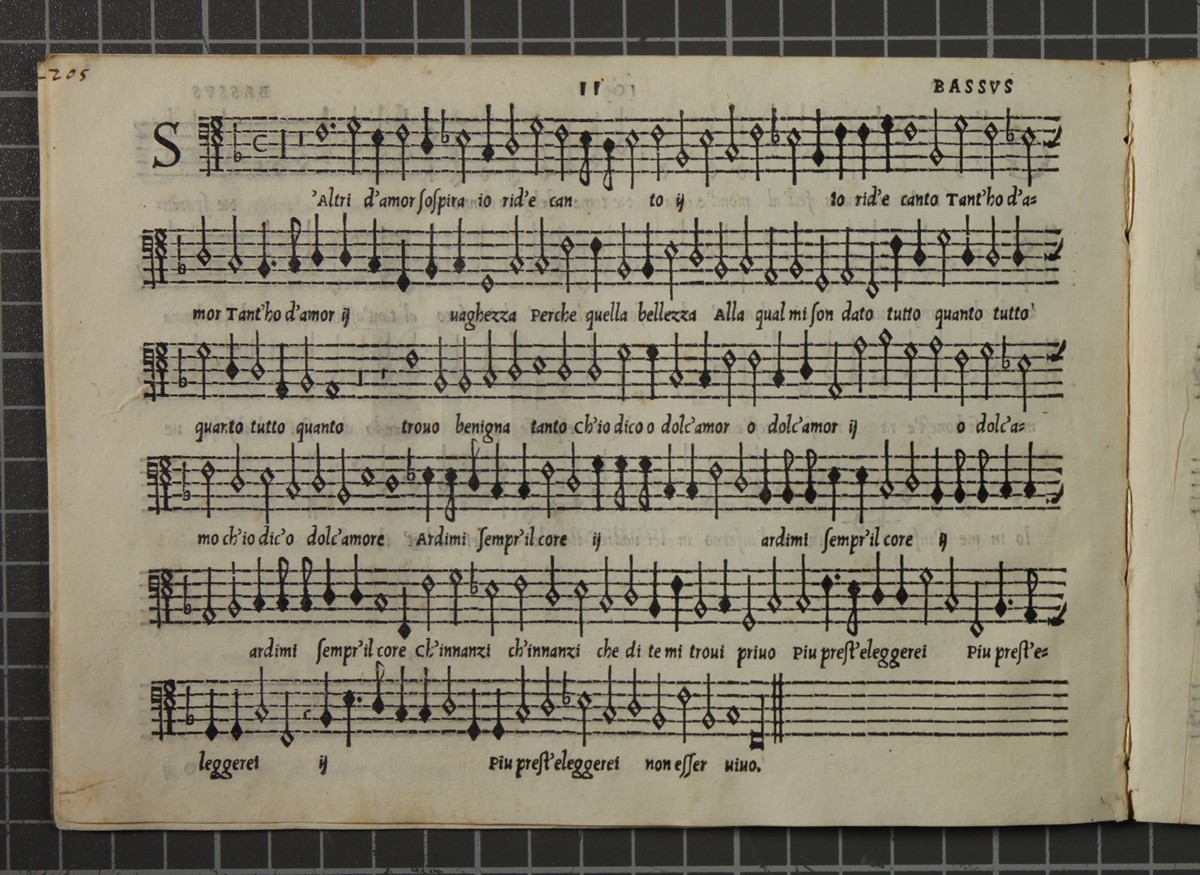 205
11
BASSVS
S
'Altri d'amor ſoſpira io rid'e can to ij Io rid'e canto Tant'ho d'a=
mor Tant'ho d'amor ij uaghezza Perche quella bellezza Alla qual mi ſon dato tutto quanto tutto
quanto tutto quanto trouo benigna tanto Ch'io dico o dolc'amor o dolc'amor ij o dolc'a=
mo ch'io dic'o dolc'amore Ardimi ſempr'il core ij ardimi ſempr'il core ij
ardimi ſempr'il core Ch'innanzi ch'innanzi che di te mi troui priuo Piu preſt'eleggerei Piu preſt'e=
leggerei ij Piu preſt'eleggerei non eſſer uiuo.